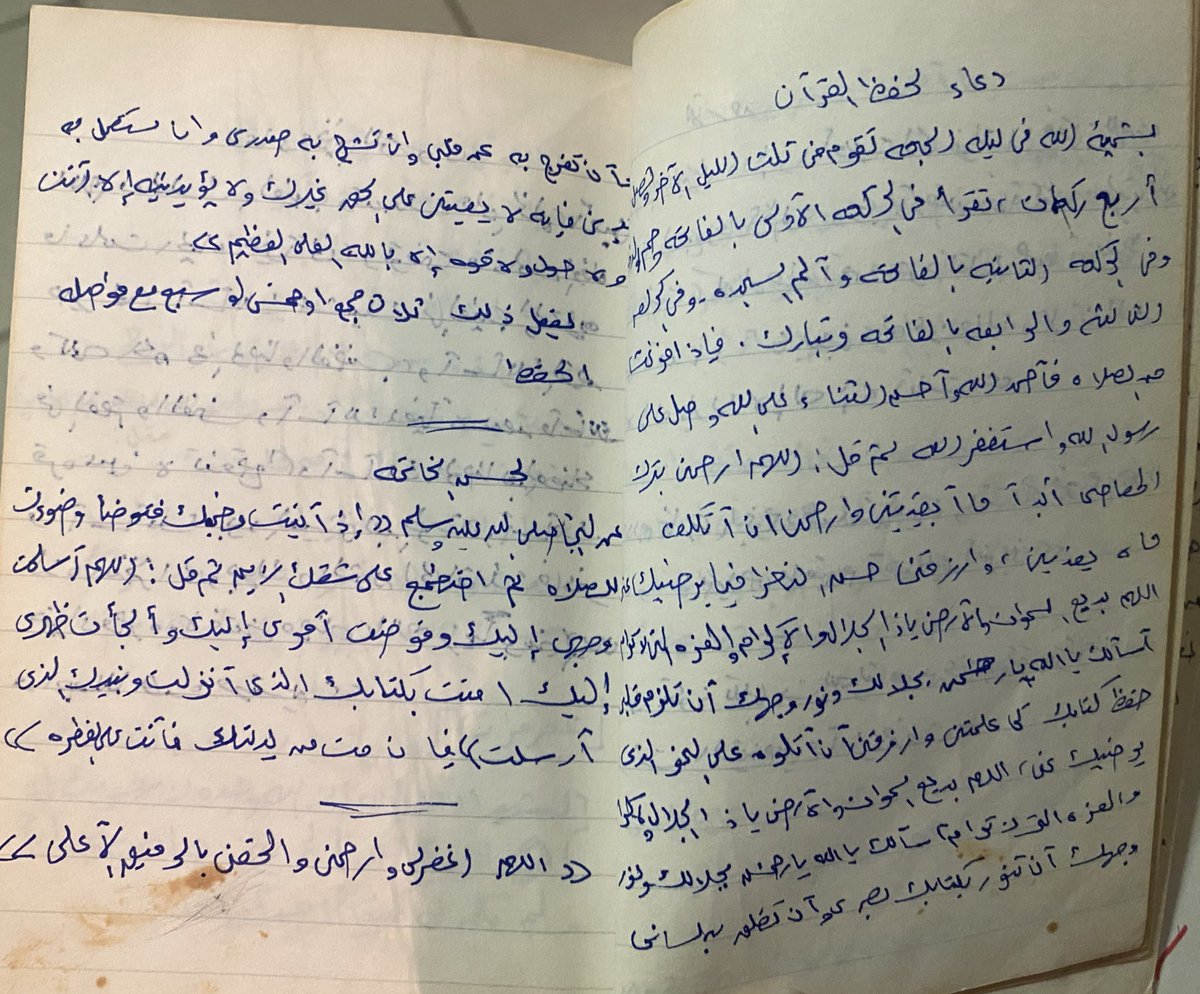 دعاء لحفظ القرآن
بمشيئة الله فى ليله الجمعه تقوم من تلت الليل الآخر وتصل
أربع ركعات، تقرأ فى الركعه الآولى بالفاتحه وحم
وفى الركعه التانيه بالفاتحه وآلم السجده. وفى الركعه
التالته والرابعه بالفاتحه وتبارك. فإذا فرغت
من الصلاه فآحمد الله وآحسن التناء على الله وصل على
رسول الله واستغفر الله تم قل: اللهم ارحمنى بترك
المعاصى آبدآ ماآبقيتنى وارحمنى ان آتكلف
ما يعنينى، وارزقنى حسن النظر فيما يرضيك عنى
اللهم بديع السموات والآرض ياذا الجلال والآكرام والعزه التى لاترام
آسآلك ياالله يارحمن بجلالك ونور وجهك آن تلزم قلبى
حفظ كتابك كما علمتنى وارزقنى آن آتلوه على النحو الذى
يرضيك عنى، اللهم بديع السموات والآرض ياذا الجلال والآكرام
والعزه التى لاترام آسآلك ياالله يارحمن بجلالك ونور
وجهك آن تنور بكتابك بصرى وآن تطلق به لسانى
وآن تفرج به عن قلبى وان تشرح به صدرى وان تستعمل به
بدنى فإنه لا يعيننى على الحق غيرك ولا يؤتينيه إلا آنت
ولا حول ولا قوه إلا بالله العلى العظيم»
يفعل ذلك تلات جمع او خمس او سبع مع مواصله
الحفظ
لحسن الخاتمه
عن النبى صلى الله عليه وسلم «إذآ آتيت مضجعك فتوضآ وضوءك
للصلاه تم اضطجع على شقك الآيمن تم قل: اللهم آسلمت
وجهى إليك وفوضت آمرى إليك وآلجآت ظهرى
إليك امنت بكتابك الذى آنزلت وبنبيك الذى
آرسلت» فإن مت من ليلتك فآنت على الفطره»
«اللهم اغفرلى وارحمنى والحقنى بالرفيق الآعلى»